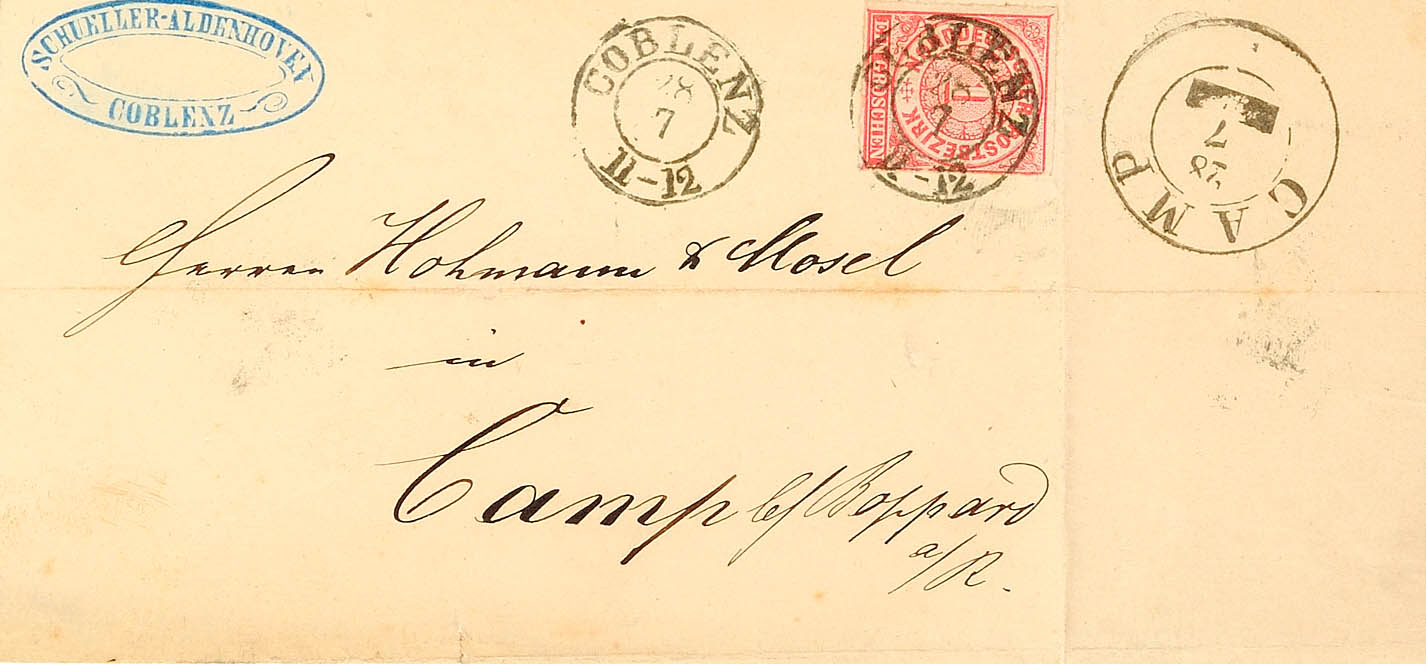 SCHUELLER-ALDENHOVEN
COBLENZ
COBLENZ
28
7
11-12
NORDDEUTSCHER POSTBEZIRK
1
EIN GROSCHEN
COBLENZ
7
11-12
CAMP
28
7
Herren Hohmann & Mosel
in
Camp b/ Boppard
a/R.